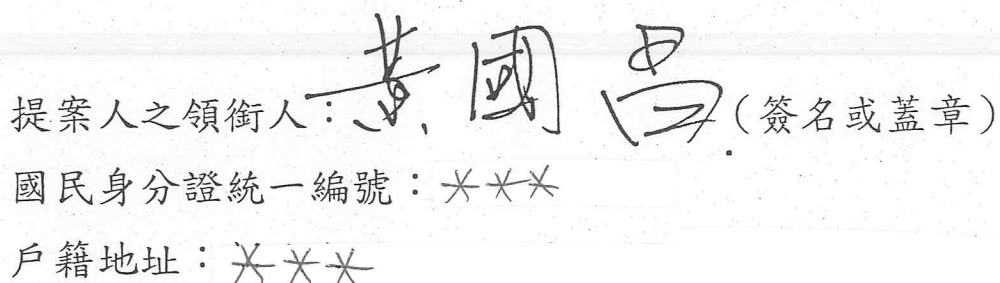 提案人之領銜人：黃國昌（簽名或蓋章）
國民身分證統一編號：***
戶籍地址：***